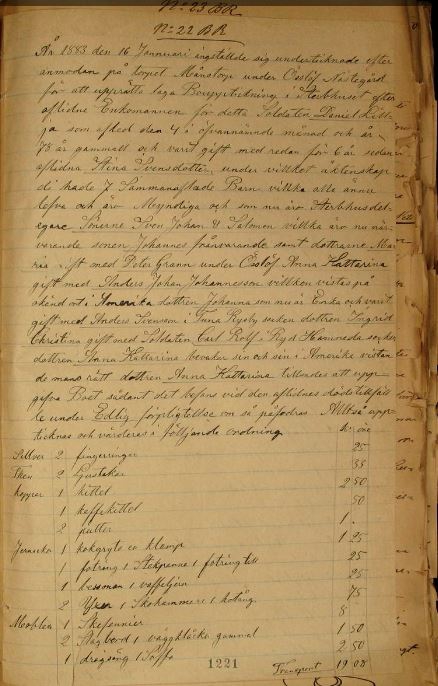 N:o 23 BR
N:o 22 BR
År 1883 den 16 Januari inställde sig undertecknade efter
anmodan på torpet Månstorp under Össlöf Nästegård
för att upprätta laga Bouppteckning i Sterbhuset efter
aflidne Enkomannen för detta Soldaten Daniel Lill
ja som afled den 4 i ofvannämde månad och år
78 år gammall och varit gift med redan för 6 år sedan
aflidna Stina Svensdotter under vilket äktenskap
de hade 7 Sammanaflade Barn vilka alla ännu
lefva och äro Myndiga och som nu äro Sterbhusdel
egare Sönerne Sven Johan & Salomon vilka äro nu när
varande sonen Johannes frånvarande samt döttrarne Ma
ria gift med Peter Grann under Össlöf Anna Kattarina
gift med Anders Johan Johannesson vilken vistas på
okänd ort i Amerika dottren Johanna som nu är Enka och varit
gift med Anders Svenson i Tuna Ryeby socken dottren Ingrid
Christina gift med Soldaten Carl Rolf i Ryds Hamneda socken
dottren Anna Kattarina bevakar sin och sen i Amerika vistan
de mans rätt dottren Anna Kattarina tillsades att upp
gifva Boet sådant det befans vid den aflidnes dödstillfäll
le under Edlig förpligtelse om så påfodras Alltså upp
tecknas och värderes i följjande ordning
kr öre
Sillver 2 fingerringar 25
Then 2 Ljustakar 35
Kopper 1 kittel 2 50
1 kaffekittel 50
2 putter 1 .
Jernsaker 1 kokgryte en klämpe 1 25
1 fotring 1 Stekpanna 1 fotring till 25
1 bessman 1 vaffeljern 25
2 Yxer 1 Skohammere 1 hoftång 75
Mööblen 1 Skefennier 8
2 Slagbord 1 väggklåcka gammal 1 50
1 dragsäng 1 Soffa 2 50
1221
Transport 19 08